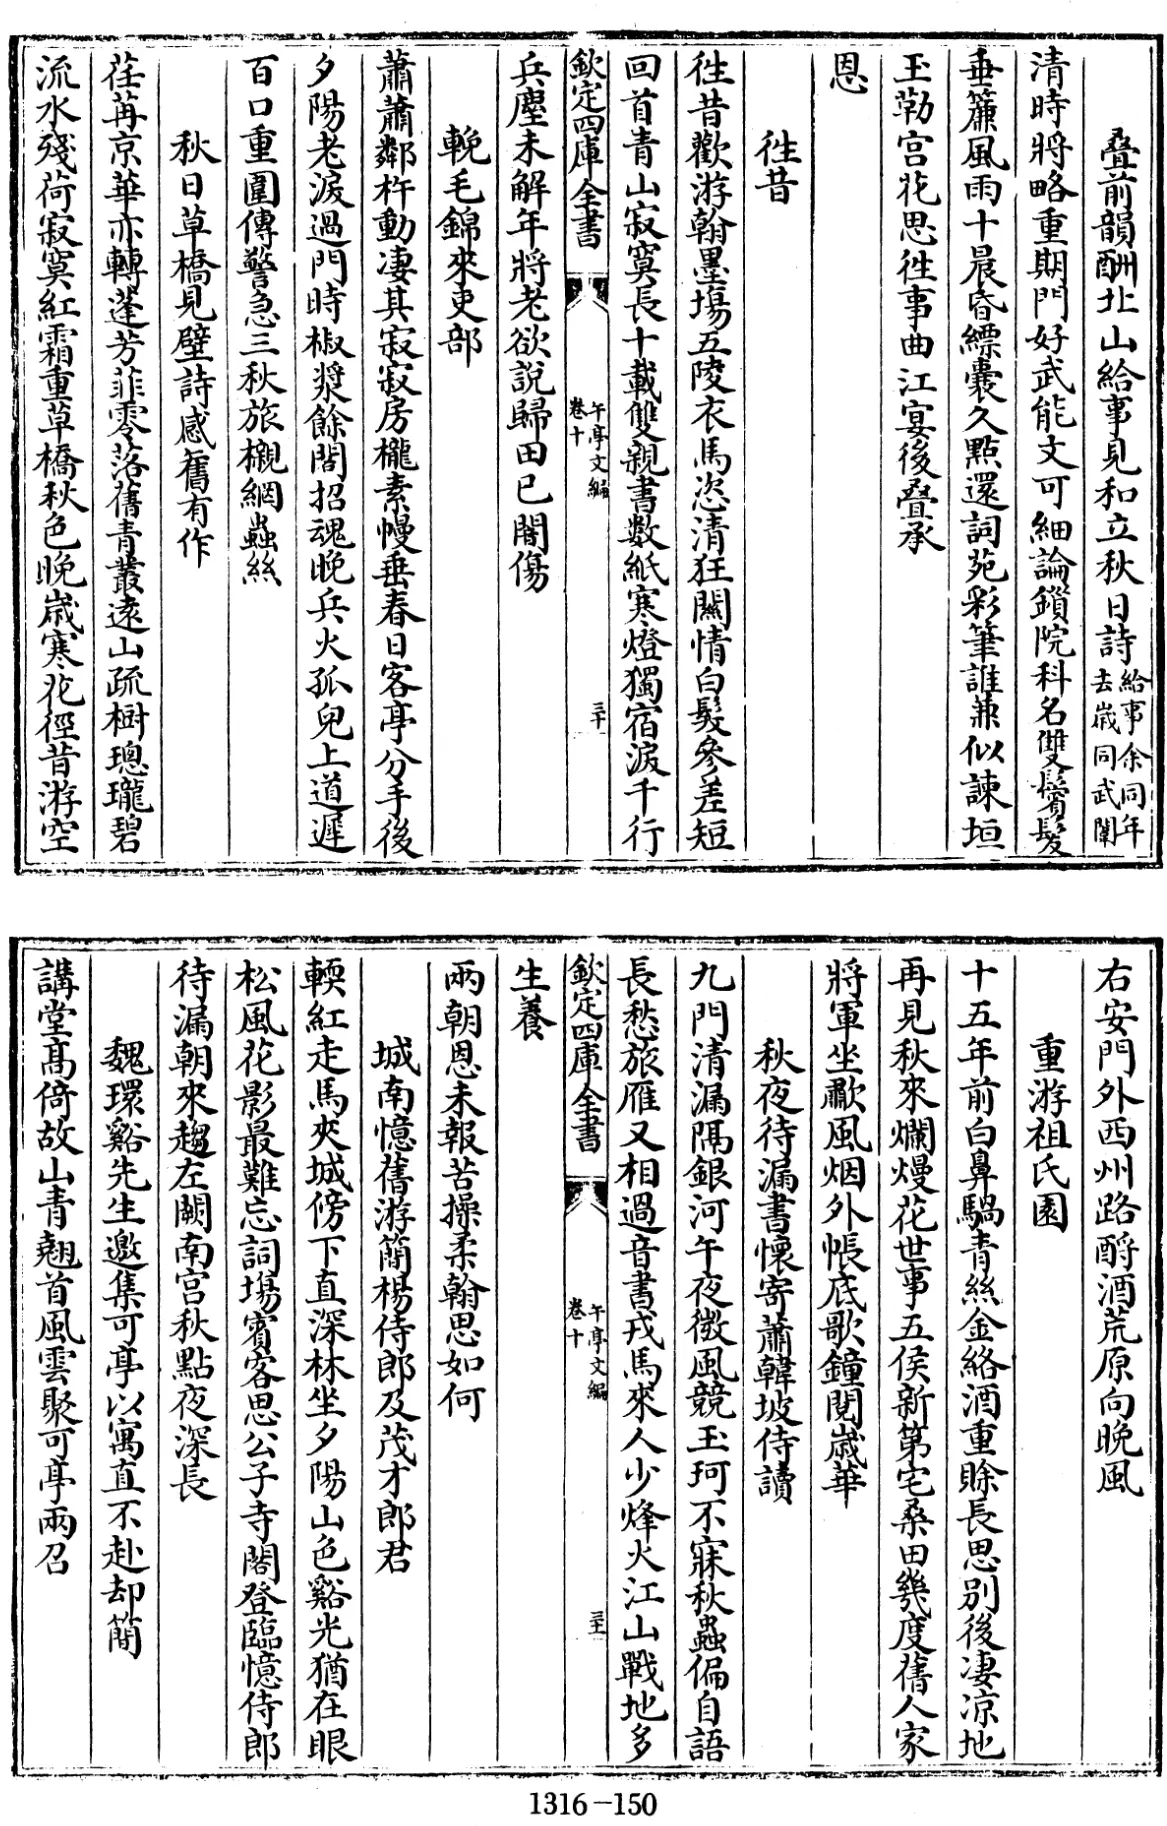 叠前韻酬北山給事見和立秋日詩給事余同年去歲同武闈
清時將略重期門好武能文可細論鎖院科名雙鬢髮
垂簾風雨十晨昏縹囊久點還詞苑彩筆誰兼似諫垣
玉勒宫花思徃事曲江宴後叠承
恩
徃昔
徃昔歡游翰墨場五陵衣馬恣清狂關情白髮參差短
回首青山寂寞長十載雙親書數紙寒燈獨宿淚千行
欽定四庫全書
午亭文編
卷十
三十
兵塵未解年將老欲說歸田已闇傷
輓毛錦來吏部
蕭蕭鄰杵動凄其寂寂房櫳素幔垂春日客亭分手後
夕陽老淚過門時椒漿餘閣招魂晚兵火孤兒上道遲
百口重圍傳警急三秋旅櫬網蟲絲
秋日草橋見壁詩感舊有作
荏苒京華亦轉蓬芳菲零落舊青叢逺山疏樹璁瓏碧
流水殘荷寂寞紅霜重草橋秋色晚歲寒花徑昔游空
右安門外西州路酹酒荒原向晚風
重游祖氏園
十五年前白鼻騧青絲金絡酒重賒長思别後凄凉地
再見秋來爛熳花世事五侯新第宅桑田幾度舊人家
將軍坐歗風烟外帳底歌鐘閱歲華
秋夜待漏書懷寄蕭韓坡侍讀
九門清漏隔銀河午夜微風競玉珂不寐秋蟲偏自語
長愁旅雁又相過音書戎馬來人少烽火江山戰地多
欽定四庫全書
午亭文編
卷十
三十一
生養
兩朝恩未報苦操柔翰思如何
城南憶舊游簡楊侍郎及茂才郎君
輭紅走馬夾城傍下直深林坐夕陽山色谿光猶在眼
松風花影最難忘詞場賓客思公子寺閣登臨憶侍郎
待漏朝來趨左闕南宫秋點夜深長
魏環谿先生邀集可亭以寓直不赴却簡
講堂髙倚故山青翹首風雲聚可亭兩召
1316－150